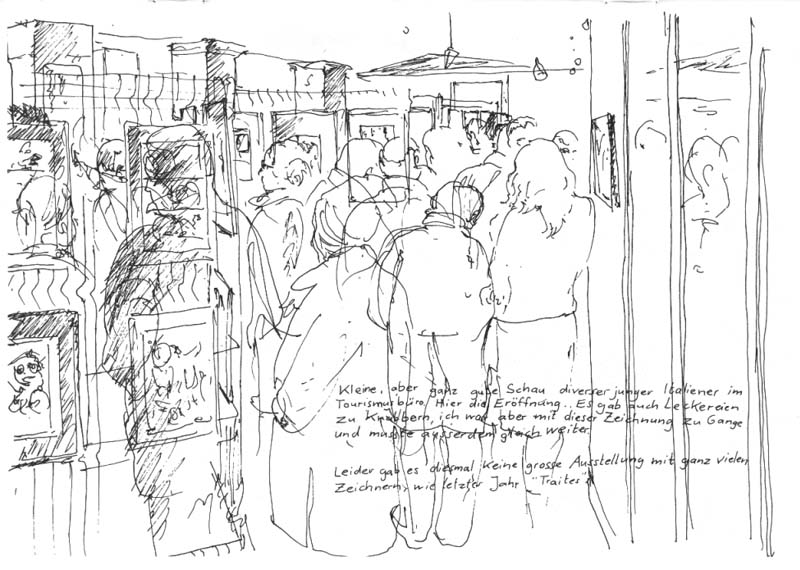 Kleine, aber ganz gute Schau diverser junger Italiener im
Tourismusbüro. Hier die Eröffnung.. Es gab auch Leckereien
zu Knabbern, ich war aber mit dieser Zeichnung zu Gange
und musste ausserdem gleich weiter
Leider gab es diesmal keine grosse Ausstellung mit ganz vielen
Zeichnern, wie letztes Jahr "Traites"